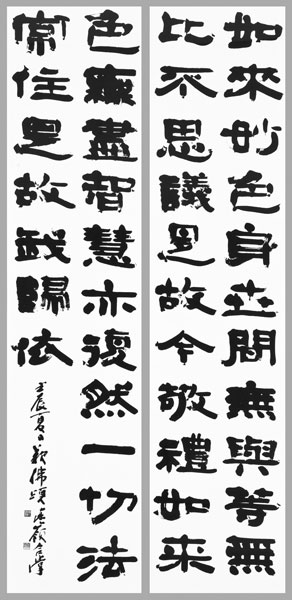 如來妙色身世間無與等無
比不思議是故今敬禮如来
色無盡智慧亦復然一切法
常住是故我歸依
壬辰夏日佛頌